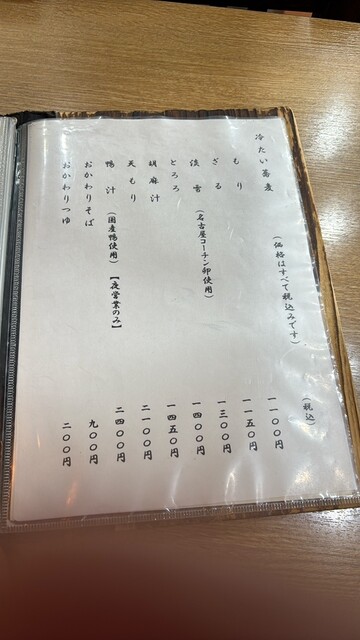 冷たい蕎麦 (価格はすべて税込みです) (税込)
もり 一一〇〇円
ざる 一一五〇円
淡雪 (名古屋コーチン卵使用) 一三〇〇円
とろろ 一四〇〇円
胡麻汁 一四五〇円
天もり 二一〇〇円
鴨汁 (国産鴨使用) 【夜営業のみ】 二四〇〇円
おかわりそば 九〇〇円
おかわりつゆ 二〇〇円